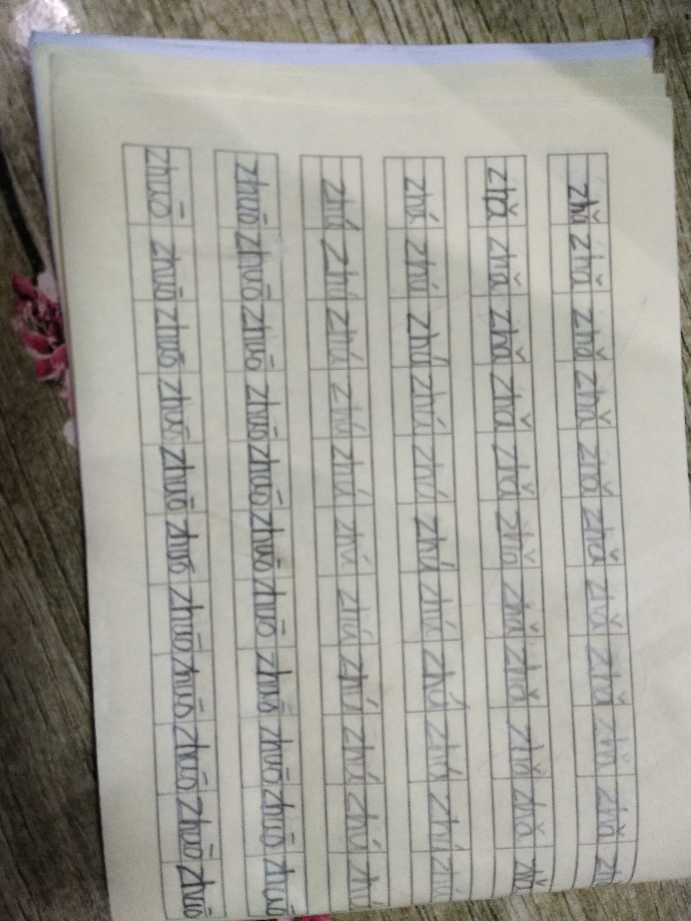 zhǎ zhǎ zhǎ zhǎ zhǎ zhǎ zhǎ zhǎ zhǎ zhǎ
zhǎ zhǎ zhǎ zhǎ zhǎ zhǎ zhǎ zhǎ zhǎ zhǎ zhǎ
zhú zhú zhú zhú zhú zhú zhú zhú zhú zhú zhú
zhú zhú zhú zhú zhú zhú zhú zhú zhú zhú zhú
zhuō zhuō zhuō zhuō zhuō zhuō zhuō zhuō zhuō zhuō zhuō
zhuō zhuō zhuō zhuō zhuō zhuō zhuō zhuō zhuō zhuō zhuō